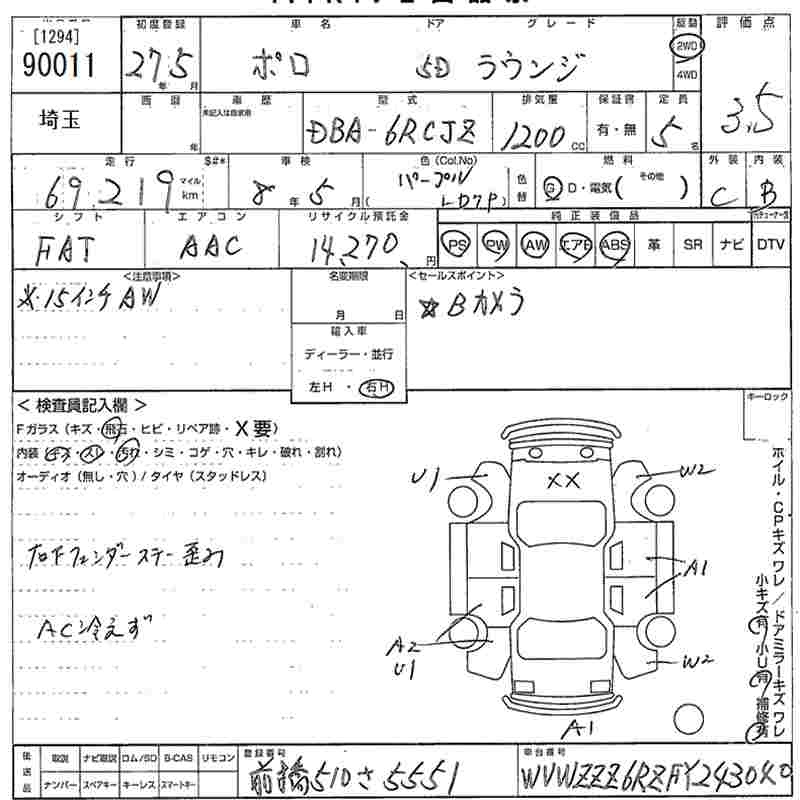 [1294]
90011
埼玉
初度登録 車名 ドア グレード 駆動 評価点
27.5 年 月 ポロ 5D ラウンジ 2WD 4WD
3.5
西暦 車歴 型式 排気量 保証書 定員
年 未記入は自家用 DBA-6RCJZ 1200 cc 有・無 5名
走行 S#* 車検 色(Col.No) 燃料 外装 内装
69,219 マイル km 8年5月 パープル (LD7P) 色替 G・D・電気( その他 ) C B
シフト エアコン リサイクル預託金 純正装備品
FAT AAC 14,270円 PS PW AW エアB ABS 革 SR ナビ DTV
<注意事項> 名変期限 <セールスポイント>
※.15インチAW 月 日 ☆Bカメラ
輸入車
ディーラー・並行
左H・右H
<検査員記入欄> キーロック
Fガラス(キズ・飛石・ヒビ・リペア跡・X要)
内装(キズ・スレ・汚れ・シミ・コゲ・穴・キレ・破れ・割れ)
オーディオ(無し・穴)/タイヤ(スタッドレス)
右下フェンダーステー歪み
AC冷えず
U1 XX W2
A1
A2
U1 W2
A1
ホイル・CPキズ ワレ/ドアミラーキズ ワレ
小キズ有 小U有 補修有
後送品 取説 ナビ取説 ロム/SD B-CAS リモコン
ナンバー スペアキー キーレス スマートキー
登録番号 前橋510さ5551
車台番号 WVWZZZ6RZFY243040